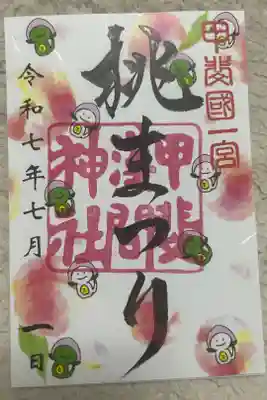 甲斐國一宮
桃まつり
甲斐國浅間神社
令和七年七月一日